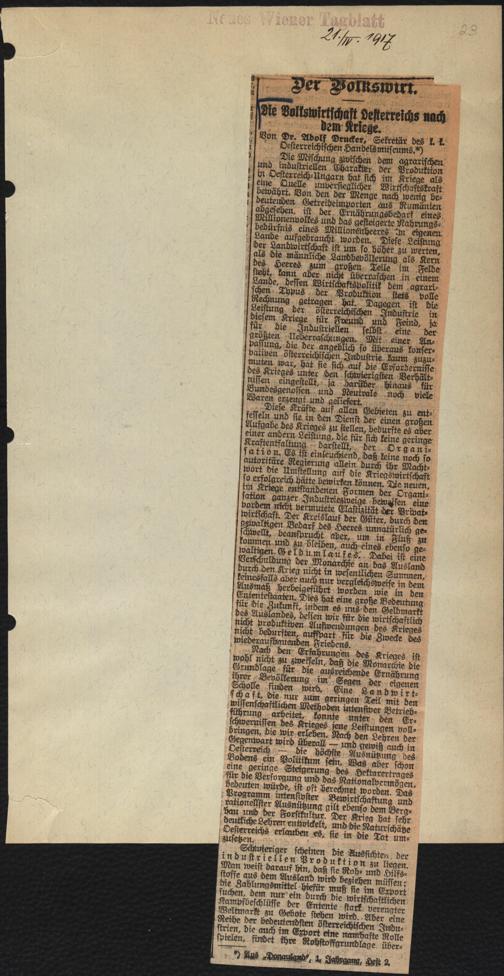 Neues Wiener Tagblatt
21./IV. 1917
23
Der Volkswirt.
Die Volkswirtschaft Oesterreichs nach
dem Kriege.
Von Dr. Adolf Drucker, Sekretär des k. k.
Oesterreichischen Handelsmuseums.*)
Die Mischung zwischen dem agrarischen
und industriellen Charakter der Produktion
in Oesterreich-Ungarn hat sich im Kriege als
eine Quelle unversieglicher Wirtschaftskraft
bewährt. Von den der Menge nach wenig be-
deutenden Getreideimporten aus Rumänien
abgesehen, ist der Ernährungsbedarf eines
Millionenvolkes und das gesteigerte Nahrungs-
bedürfnis eines Millionenheeres im eigenen
Lande aufgebracht worden. Diese Leistung
der Landwirtschaft ist um so höher zu werten,
als die männliche Landbevölkerung als Kern
des Heeres zum großen Teile im Felde
steht, kann aber nicht überraschen in einem
Lande, dessen Wirtschaftspolitik dem agrari-
schen Typus der Produktion stets volle
Rechnung getragen hat. Dagegen ist die
Leistung der österreichischen Industrie in
diesem Kriege für Freund und Feind, ja
für die Industriellen selbst eine der
größten Ueberraschungen. Mit einer An-
passung, die der angeblich so überaus konser-
vativen österreichischen Industrie kaum zuzu-
muten war, hat sie sich auf die Erfordernisse
des Krieges unter den schwierigsten Verhält-
nissen eingestellt, ja darüber hinaus für
Bundesgenossen und Neutrale noch viele
Waren erzeugt und geliefert.
Diese Kräfte auf allen Gebieten zu ent-
fesseln und sie in den Dienst der einen großen
Aufgabe des Krieges zu stellen, bedurfte es aber
einer andern Leistung, die für sich keine geringe
Kraftentfaltung darstellt, der Organi-
sation. Es ist einleuchtend, daß keine noch so
autoritäre Regierung allein durch ihr Macht-
wort die Umstellung auf die Kriegswirtschaft
so erfolgreich hätte bewirken können. Die neuen,
im Kriege entstandenen Formen der Organi-
sation ganzer Industriezweige bewiesen eine
vordem nicht vermutete Elastizität der Privat-
wirtschaft. Der Kreislauf der Güter, durch den
gewaltigen Bedarf des Heeres unnatürlich ge-
schwellt, beanspruchte aber, um in Fluß zu
kommen und zu bleiben, auch eines ebenso ge-
waltigen Geldumlaufes. Dabei ist eine
Verschuldung der Monarchie an das Ausland
durch den Krieg nicht in wesentlichen Summen,
keinesfalls aber auch nur vergleichsweise in dem
Ausmaß herbeigeführt worden wie in den
Ententestaaten. Dies hat eine große Bedeutung
für die Zukunft, indem es uns den Geldmarkt
des Auslandes, dessen wir für die wirtschaftlich
nicht produktiven Aufwendungen des Krieges
nicht bedurften, auffpart für die Zwecke des
wiederaufbauenden Friedens.
Nach den Erfahrungen des Krieges ist
wohl nicht zu zweifeln, daß die Monarchie die
Grundlage für die ausreichende Ernährung
ihrer Bevölkerung im Segen der eigenen
Scholle finden wird. Eine Landwirt-
schaft, die nur zum geringen Teil mit den
wissenschaftlichen Methoden intensiver Betrieb-
führung arbeitet, konnte unter den Er-
schwernissen des Krieges jene Leistungen voll-
bringen, die wir erleben. Nach den Lehren der
Gegenwart wird überall — und gewiß auch in
Oesterreich — die höchste Ausnützung des
Bodens ein Politikum sein. Was aber schon
eine geringe Steigerung des Hektarertrages
für die Versorgung und das Nationalvermögen
bedeuten würde, ist oft berechnet worden. Das
Programm intensivster Bewirtschaftung und
rationellster Ausnützung gilt ebenso dem Berg-
bau und der Forstkultur. Der Krieg hat sehr
deutliche Lehren entwickelt, und die Naturschätze
Oesterreichs erlauben es, sie in die Tat um-
zusetzen.
Schwieriger scheinen die Aussichten der
industriellen Produktion zu liegen.
Man weist darauf hin, daß sie Roh- und Hilfs-
stoffe aus dem Ausland wird beziehen müssen;
die Zahlungsmittel hiefür muß sie im Export
suchen, dem nur ein durch die wirtschaftlichen
Kampfbeschlüsse der Entente stark verengter
Weltmarkt zu Gebote stehen wird. Aber eine
Reihe der bedeutendsten österreichischen Indu-
strien, die auch im Export eine namhafte Rolle
spielen, findet ihre Rohstoffgrundlage über-
*) Aus „Donauland“, 1. Jahrgang, Heft 2.